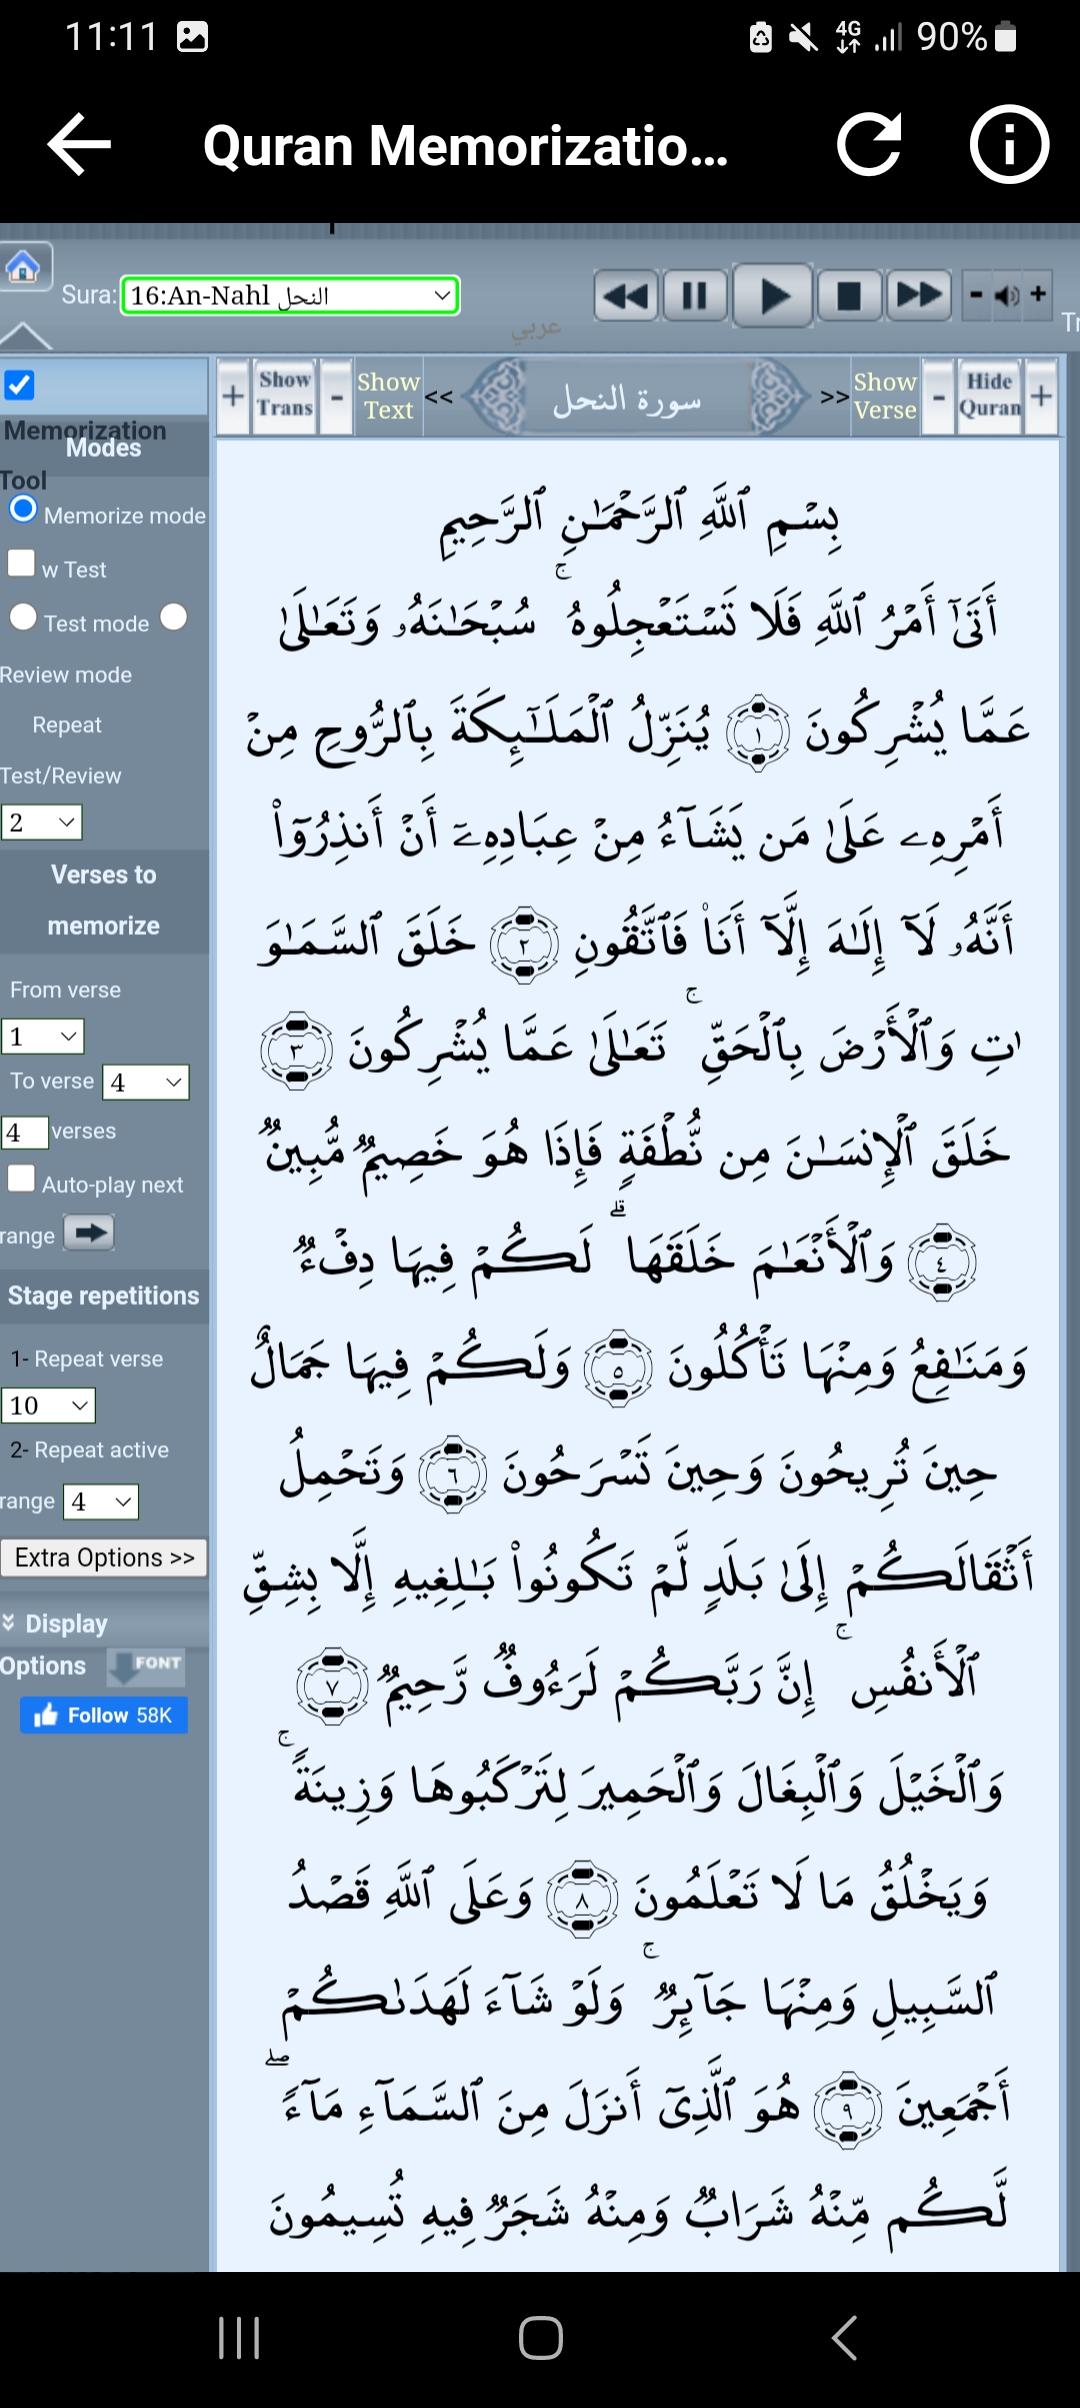 11:11
4G 90%
Quran Memorizatio...
Sura: 16:An-Nahl النحل
عربي
Tr
+ Show Trans - Show Text << سورة النحل >> Show Verse - Hide Quran +
Memorization
Modes
Tool
Memorize mode
w Test
Test mode
Review mode
Repeat
Test/Review
2
Verses to
memorize
From verse
1
To verse 4
4 verses
Auto-play next
range
Stage repetitions
1- Repeat verse
10
2- Repeat active
range 4
Extra Options >>
Display
Options FONT
Follow 58K
بِسْمِ ٱللَّهِ ٱلرَّحْمَـٰنِ ٱلرَّحِيمِ
أَتَىٰٓ أَمْرُ ٱللَّهِ فَلَا تَسْتَعْجِلُوهُ ۚ سُبْحَـٰنَهُۥ وَتَعَـٰلَىٰ
عَمَّا يُشْرِكُونَ ١ يُنَزِّلُ ٱلْمَلَـٰٓئِكَةَ بِٱلرُّوحِ مِنْ
أَمْرِهِۦ عَلَىٰ مَن يَشَآءُ مِنْ عِبَادِهِۦٓ أَنْ أَنذِرُوٓا۟
أَنَّهُۥ لَآ إِلَـٰهَ إِلَّآ أَنَا۠ فَٱتَّقُونِ ٢ خَلَقَ ٱلسَّمَـٰوَ
ٰتِ وَٱلْأَرْضَ بِٱلْحَقِّ ۚ تَعَـٰلَىٰ عَمَّا يُشْرِكُونَ ٣
خَلَقَ ٱلْإِنسَـٰنَ مِن نُّطْفَةٍ فَإِذَا هُوَ خَصِيمٌ مُّبِينٌ
٤ وَٱلْأَنْعَـٰمَ خَلَقَهَا ۗ لَكُمْ فِيهَا دِفْءٌ
وَمَنَـٰفِعُ وَمِنْهَا تَأْكُلُونَ ٥ وَلَكُمْ فِيهَا جَمَالٌ
حِينَ تُرِيحُونَ وَحِينَ تَسْرَحُونَ ٦ وَتَحْمِلُ
أَثْقَالَكُمْ إِلَىٰ بَلَدٍ لَّمْ تَكُونُوا۟ بَـٰلِغِيهِ إِلَّا بِشِقِّ
ٱلْأَنفُسِ ۚ إِنَّ رَبَّكُمْ لَرَءُوفٌ رَّحِيمٌ ٧
وَٱلْخَيْلَ وَٱلْبِغَالَ وَٱلْحَمِيرَ لِتَرْكَبُوهَا وَزِينَةً ۚ
وَيَخْلُقُ مَا لَا تَعْلَمُونَ ٨ وَعَلَى ٱللَّهِ قَصْدُ
ٱلسَّبِيلِ وَمِنْهَا جَآئِرٌ ۚ وَلَوْ شَآءَ لَهَدَىٰكُمْ
أَجْمَعِينَ ٩ هُوَ ٱلَّذِىٓ أَنزَلَ مِنَ ٱلسَّمَآءِ مَآءً ۖ
لَّكُم مِّنْهُ شَرَابٌ وَمِنْهُ شَجَرٌ فِيهِ تُسِيمُونَ